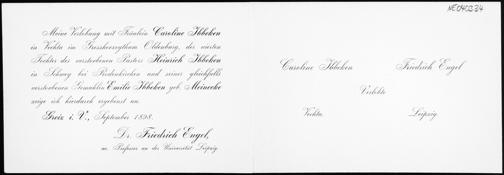 NE040234
Meine Verlobung mit Fräulein Caroline Ibbeken
in Vechta im Grossherzogthum Oldenburg, der vierten
Tochter des verstorbenen Pastors Heinrich Ibbeken
in Schwey bei Rodenkirchen und seiner gleichfalls
verstorbenen Gemahlin Emilie Ibbeken geb. Meinecke
zeige ich hierdurch ergebenst an.
Greiz i. V., September 1898.
Dr. Friedrich Engel,
ao. Professor an der Universität Leipzig.
Caroline Ibbeken
Friedrich Engel
Verlobte
Vechta.
Leipzig.